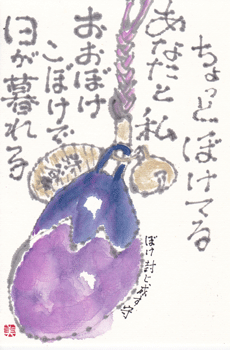 ちょっとぼけてる
あなたと私
おおぼけ
こぼけで
日が暮れる
ぼけ封じ成す守
美